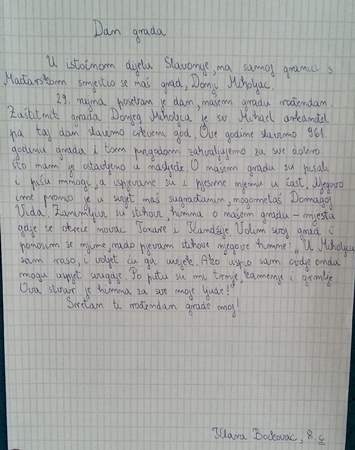 Dan grada
U istočnom dijelu Slavonije, na samoj granici s
Mađarskom smjestio se naš grad, Donji Miholjac.
29. rujna poseban je dan, našem gradu rođendan.
Zaštitnik grada Donjeg Miholjca je sv. Mihael arkanđel
pa taj dan slavimo crkveni god. Ove godine slavimo 961.
godinu grada i tom prigodom zahvaljujemo za sve dobro
što nam je ostavljeno u nasljeđe. O našem gradu su pisali
i pišu mnogi, a ispjevane su i pjesme njemu u čast. Njegovo
ime pronio je u svijet naš sugrađanin, nogometaš Domagoj
Vida. Zanimljivi su stihovi himna o našem gradu – mjesta
gdje se okreće novac Tokare i Kandžije. Volim svoj grad i
ponosim se njime, rado pjevam stihove njegove himne: „U Miholjcu
sam raso, i voljet ću ga uvijek. Ako uspio sam ovdje onda
mogu uspjet svugdje. Po putu su mi trnje, kamenje i grmlje
Ova stvar je himna za sve moje ljude!"
Sretan ti rođendan grade moj!
Klara Bockovac, 8. c